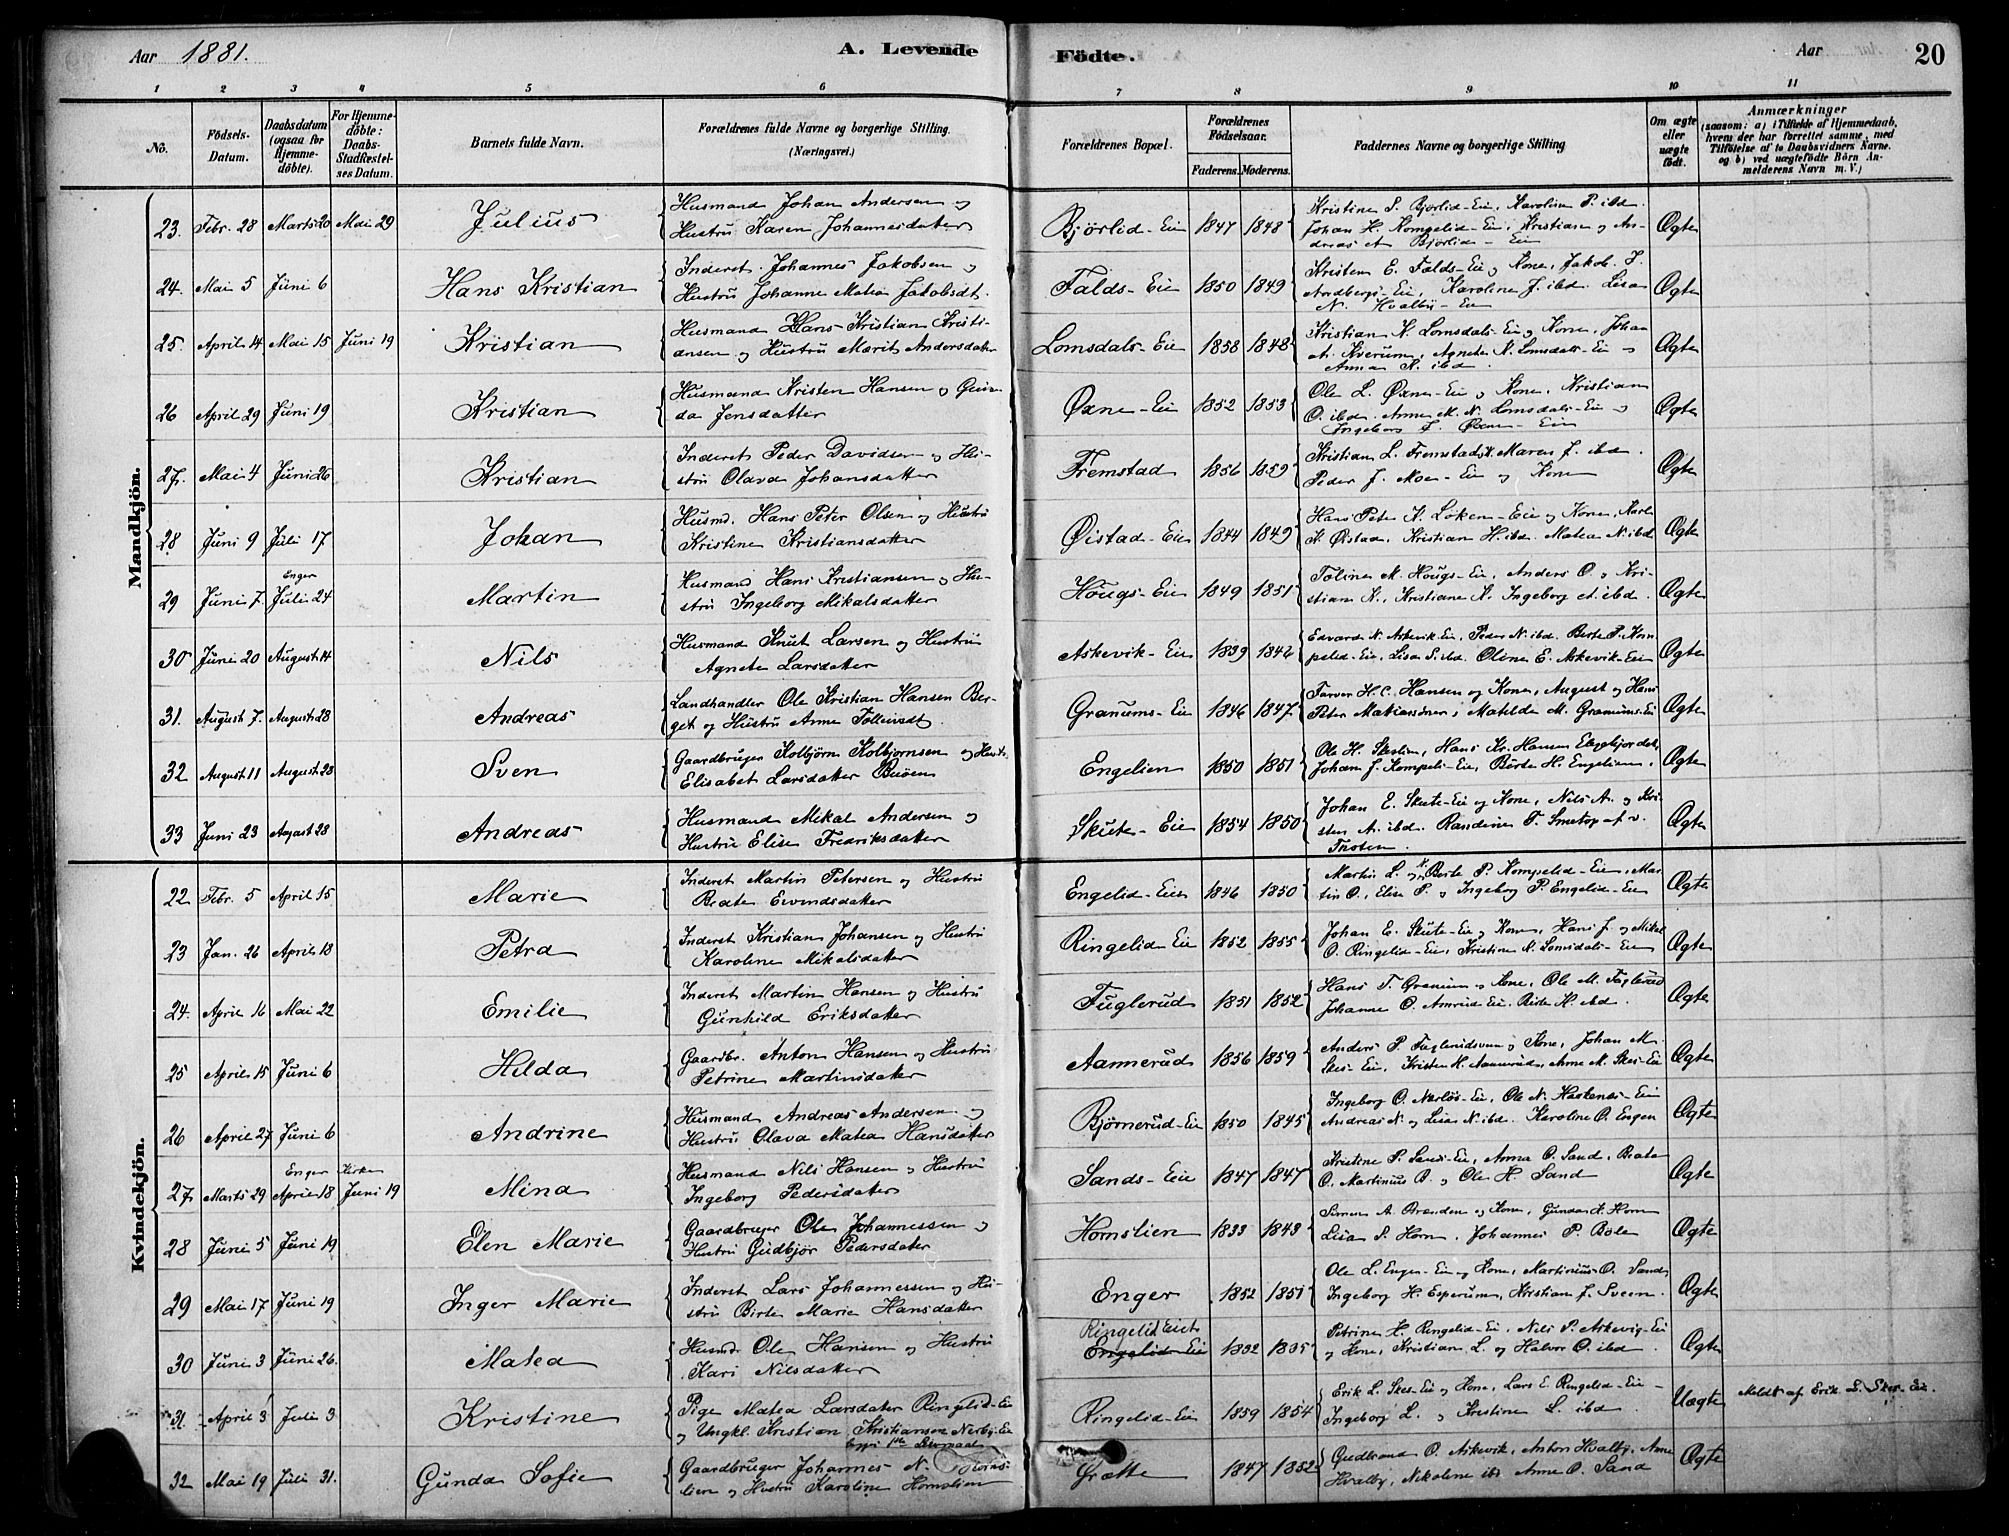 Aar 1881. A. Levende Födte. Aar 20
1 2 3 4 5 6 7 8 9 10 11
No. Födsels-Datum. Daabsdatum (ogsaa for Hjemme-döbte). For Hjemme-döbte: Daabs-Stadfæstel-ses Datum. Barnets fulde Navn. Forældrenes fulde Navne og borgerlige Stilling. (Næringsvei.) Forældrenes Bopæl. Forældrenes Födselsaar. Faderens. Moderens. Faddernes Navne og borgerlige Stilling Om ægte eller uægte födt. Anmærkninger (saasom: a) i Tilfælde af Hjemmedaab, hvem der har forrettet samme, med Tilföielse af to Daabsvidners Navne. og b) ved uægtefödte Börn An-melderens Navn m. V.)
Mandkjön.
23. Febr. 28 Marts 20 Mai 29 Julius Husmand Johan Andersen og Hustru Karen Johannesdatter Bjørlid-Eie 1847 1848 Kristine P. Bjørlid-Eie, Karoline P. ibd. Johan H. Kompelid-Eie, Kristian og Andreas A. Bjørlid-Eie Ægte
24. Mai 5 Juni 6 Hans Kristian Inderst. Johannes Jakobsen og Hustru Johanne Matea Jakobsdt. Falds-Eie 1850 1849 Kristen E. Falds-Eie og Kone, Jakob J. Nordbergs-Eie, Karoline J. ibd. Lisa N. Hvalby-Eie Ægte
25. April 14 Mai 15 Juni 19 Kristian Husmand Hans Kristian Kristiansen og Hustru Marit Andersdatter Lomsdals-Eie 1858 1848 Kristian K. Lomsdals-Eie og Kone, Johan A. Kverum, Agnete K. Lomsdals-Eie og Anna K. ibd. Ægte
26 April 29 Juni 19 Kristian Husmand Kristen Hansen og Gunda Jensdatter Øxne-Eie 1852 1853 Ole L. Øxne-Eie og Kone, Kristian O. ibd. Anne M. N. Lomsdals-Eie og Ingeborg J. Øxne-Eie Ægte
27. Mai 4 Juni 26 Kristian Inderst Peder Davidsen og Hustru Olava Johansdatter Fremstad 1856 1859 Kristian L. Fremstad, Maren J. ibd. Peder J. Moe-Eie og Kone Ægte
28 Juni 9 Juli 17 Johan Husmd. Hans Peter Olsen og Hustru Kristine Kristiansdatter Øistad-Eie 1844 1849 Hans Peter K. Løken-Eie og Kone, Karl K. Øistad, Kristian H. ibd. Matea N. ibd Ægte
29 Juni 7. Enger Juli 24 Martin Husmand Hans Kristiansen og Hustru Ingeborg Mikalsdatter Hougs-Eie 1849 1851 Toline M. Hougs-Eie, Anders O. og Kristian K., Kristiane K. Ingeborg A. ibd. Ægte
30 Juni 20 August 14 Nils Husmand Knut Larsen og Hustru Agnete Larsdatter Askevik-Eie 1839 1842 Edvard N. Askevik-Eie, Peder N. ibd. Berte P. Kompelid-Eie, Lisa S. ibd. Oline E. Askevik-Eie Ægte
31. August 7. August 28 Andreas Landhandler Ole Kristian Hansen Berget og Hustru Anne Tollevsdt. Granums-Eie 1846 1847 Farver H. C. Hansen og Kone, August og Hans Peter Matiassøner, Matilde M. Granums-Eie Ægte
32 August 11 August 28 Sven Gaardbruger Kolbjörn Kolbjornsen og Hustr. Elisabet Larsdatter Engelien 1850 1851 Ole H. Skolien, Hans Kr. Hansen Johan J. Kompeli-Eie, Börte H. Engelien. Ægte
33 Juni 23 August 28 Andreas Husmand Mikal Andersen og Hustru Elise Fredriksdatter Skute-Eie 1854 1850 Johan E. Skute-Eie og Kone, Nils A. og Kristen A. ibd. Randine F. Smeby af v. Thoten. Ægte
Kvindekjön.
22 Febr. 5 April 15 Marie Inderst Martin Petersen og Hustru Beate Evindsdatter Engelid-Eie 1846 1850 Martin L. og Berte P. Kompelid-Eie, Martin O., Elise P. og Ingeborg P. Engelid-Eie Ægte
23 Jan. 26 April 18 Petra Inderst Kristian Johansen og Hustru Karoline Mikalsdatter Ringelid-Eie 1852 1855 Johan E. Skute-Eie og Kone, Hans J. og Mikal O. Ringelid-Eie, Kristine N. Lomsdals-Eie Ægte
24. April 16 Mai 22 Emilie Inderst Martin Hansen og Hustru Gunhild Eriksdatter Fuglerud 1851 1852 Hans T. Granum og Kone, Ole M. Fuglerud Johanne O. Amrud-Eie. Berte H. ibd. Ægte
25 April 15 Juni 6 Hilda Gaardbr. Anton Hansen og Hustru Petrine Martinsdatter Aannerud 1856 1859 Anders P. Fuglerudsveen og Kone, Johan M. Skes-Eie, Kristen H. Aannerud, Anne M. Skes-Eie Ægte
26 April 27 Juni 6 Andrine Husmand Andreas Andersen og Hustru Olava Matea Hansdatter Bjørnerud-Eie 1850 1845 Ingeborg O. Nerløs-Eie, Ole N. Haskenes-Eie Andreas N. og Lisa N. ibd. Karoline O. Engen Ægte
27. Marts 29 Enger Kirke April 18 Juni 19 Mina Husmand Nils Hansen og Hustru Ingeborg Pedersdatter Sands-Eie 1847 1847 Kristine P. Sands-Eie, Anna O. Sand, Beate O. Martinus O. og Ole H. Sand Ægte
28 Juni 5 Juni 19 Elen Marie Gaardbruger Ole Johannessen og Hustru Gudbjør Pedersdatter Hornslien 1833 1843 Simen A. Brænden og Kone, Gunda K. Horn Lisa S. Horn, Johannes P. Bøle Ægte
29 Mai 17 Juni 19 Inger Marie Inderst Lars Johannessen og Hustru Birte Marie Hansdatter Enger 1852 1851 Ole L. Enger-Eie og Kone, Martinius O. Sand, Ingeborg H. Esperum, Kristian J. Sveen. Ægte
30 Juni 3 Juni 26. Matea Husmd. Ole Hansen og Hustru Kari Nilsdatter Ringelid Eiet Engelid-Eie 1832 1835 Petrine H. Ringelid-Eie, Nils P. Askevig-Eie og Kone, Kristian L. og Halvor O. ibd. Ægte
31. April 3 Juli 3 Kristine Pige Matea Larsdatter Ringelid-Eie og Ungkl. Kristian Kristiansen Nerby-Eie begges 1ste Leiermaal Ringelid-Eie 1859 1854 Erik L. Skes-Eie og Kone, Lars E. Ringelid-Eie Ingeborg L. og Kristine L. ibd Uægte Meldt af Erik L. Skes-Eie.
32 Mai 19 Juli 31. Gunda Sofie Gaardbruger Johannes N. Hornslien og Hustru Karoline Hornslien Grøtte 1847 1852 Gudbrand O. Askevik, Anton Hvalby, Anne Hvalby, Nikoline ibd Anne O. Sand Ægte